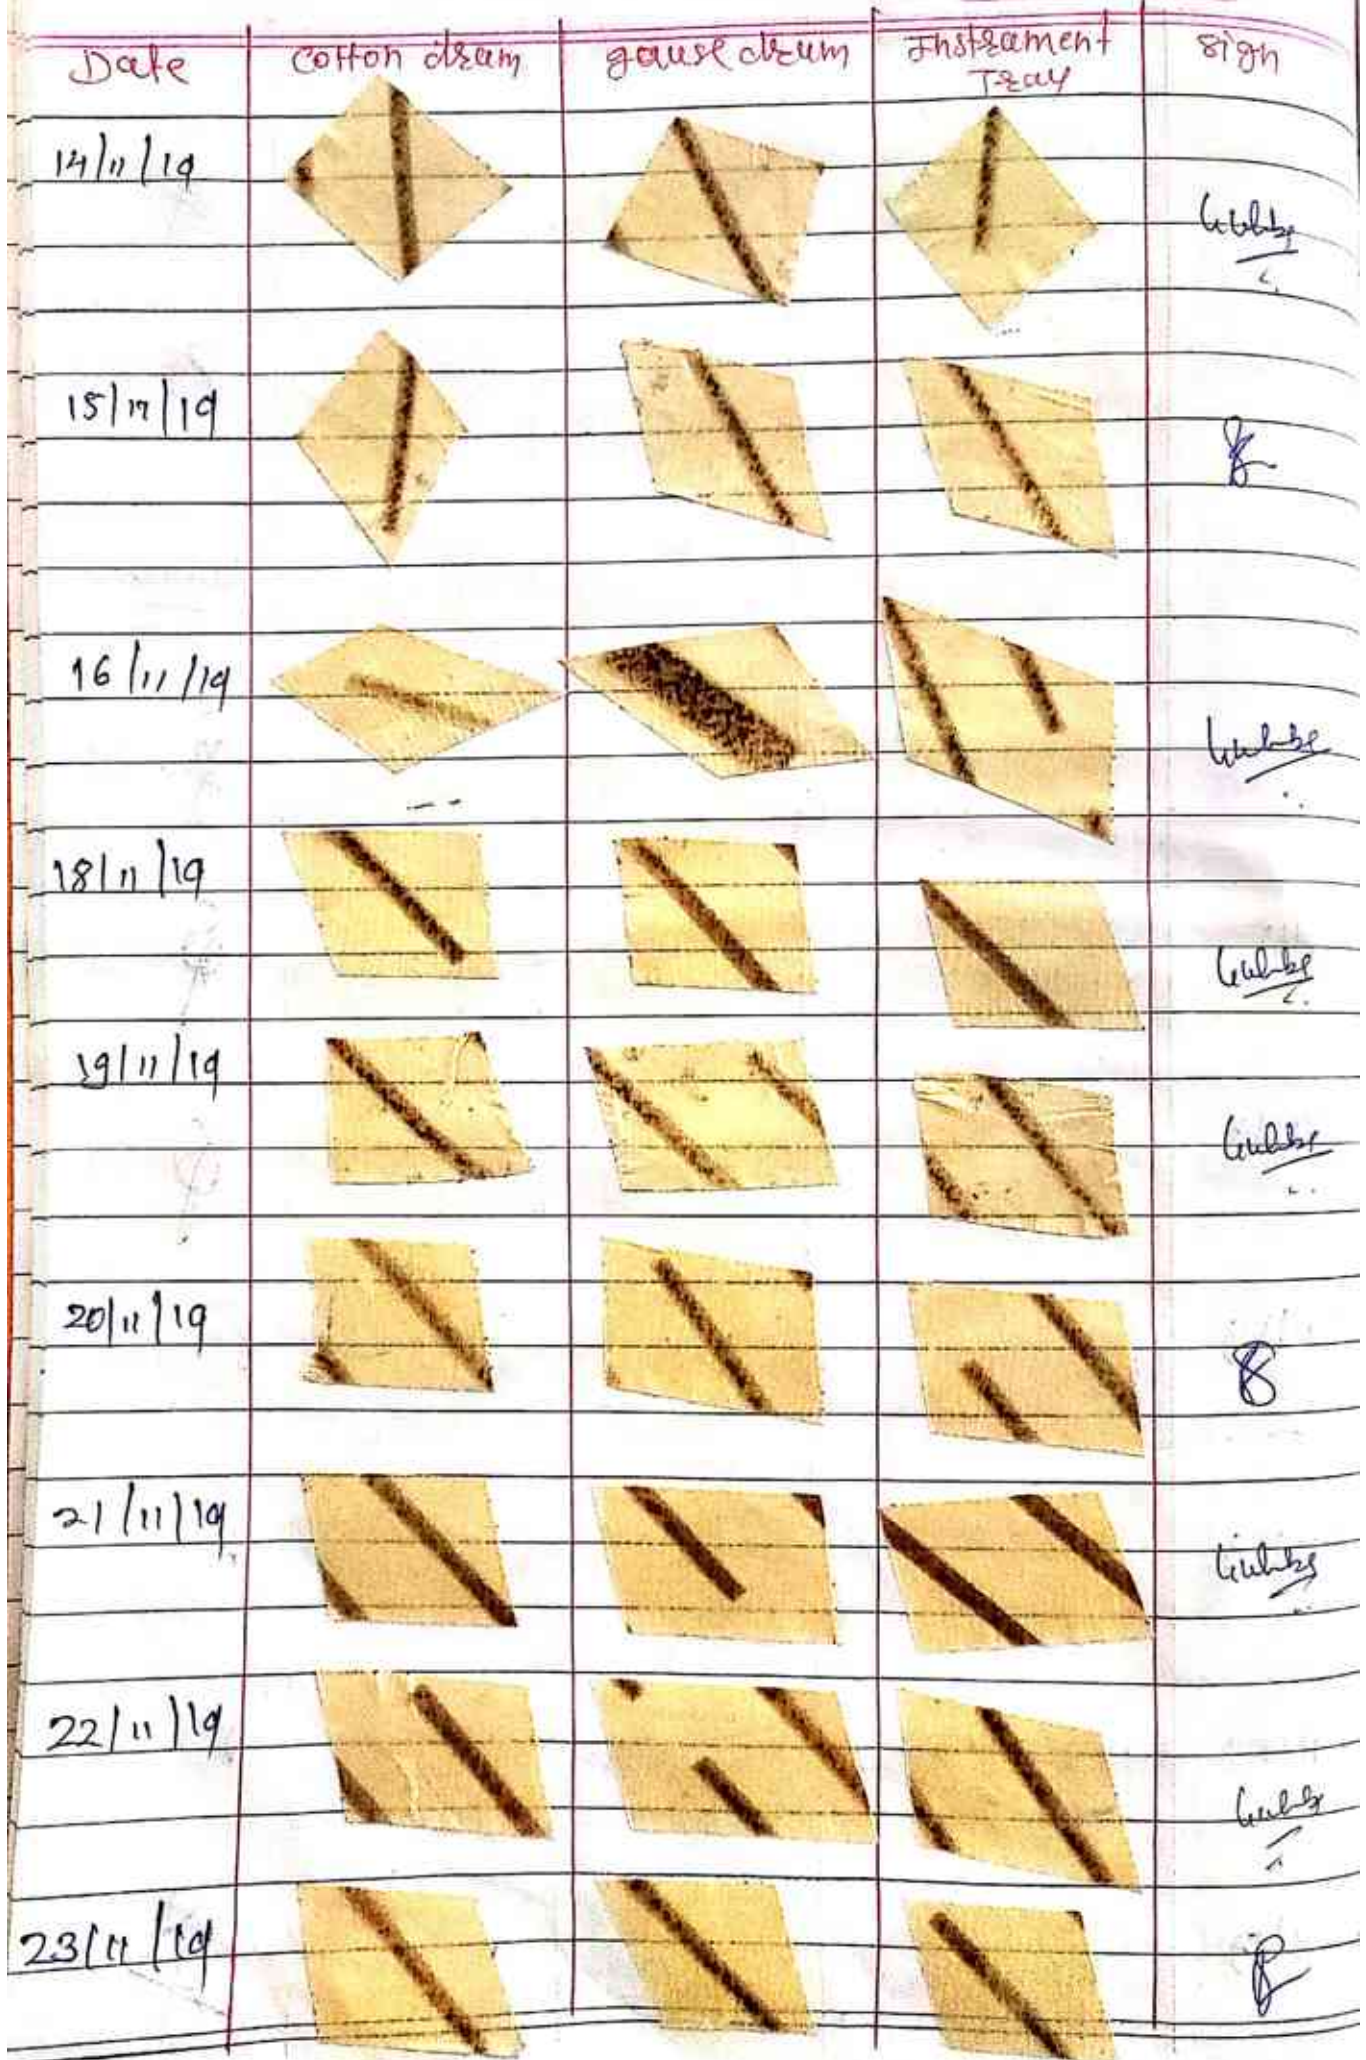 Date Cotton drum gause drum Instrament Tray sign
14/11/19
15/11/19
16/11/19
18/11/19
19/11/19
20/11/19
21/11/19
22/11/19
23/11/19